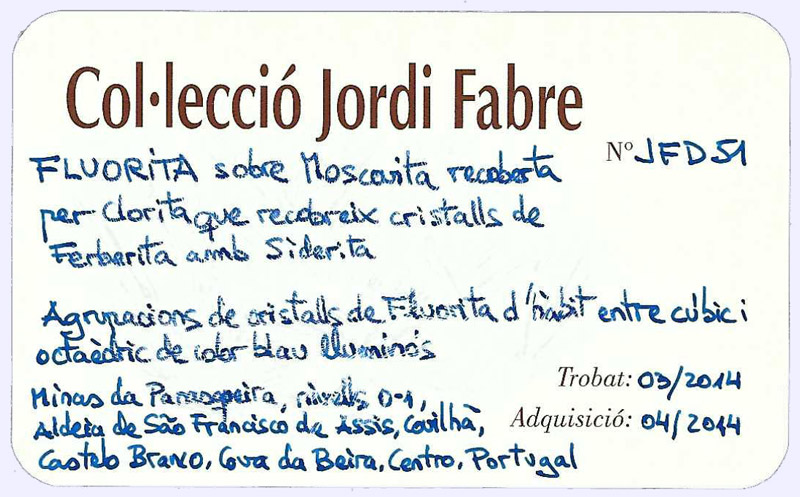 Col·lecció Jordi Fabre
Nº JFD51
FLUORITA sobre Moscovita recoberta
per Clorita que recobreix cristalls de
Ferberita amb Siderita
Agrupacions de cristalls de Fluorita d'hàbit entre cúbic i
octaèdric de color blau lluminós
Trobat: 03/2014
Minas da Panasqueira, nivells 0-1,
Adquisició: 04/2014
Aldeia de São Francisco de Assis, Covilhã,
Castelo Branco, Cova da Beira, Centro, Portugal